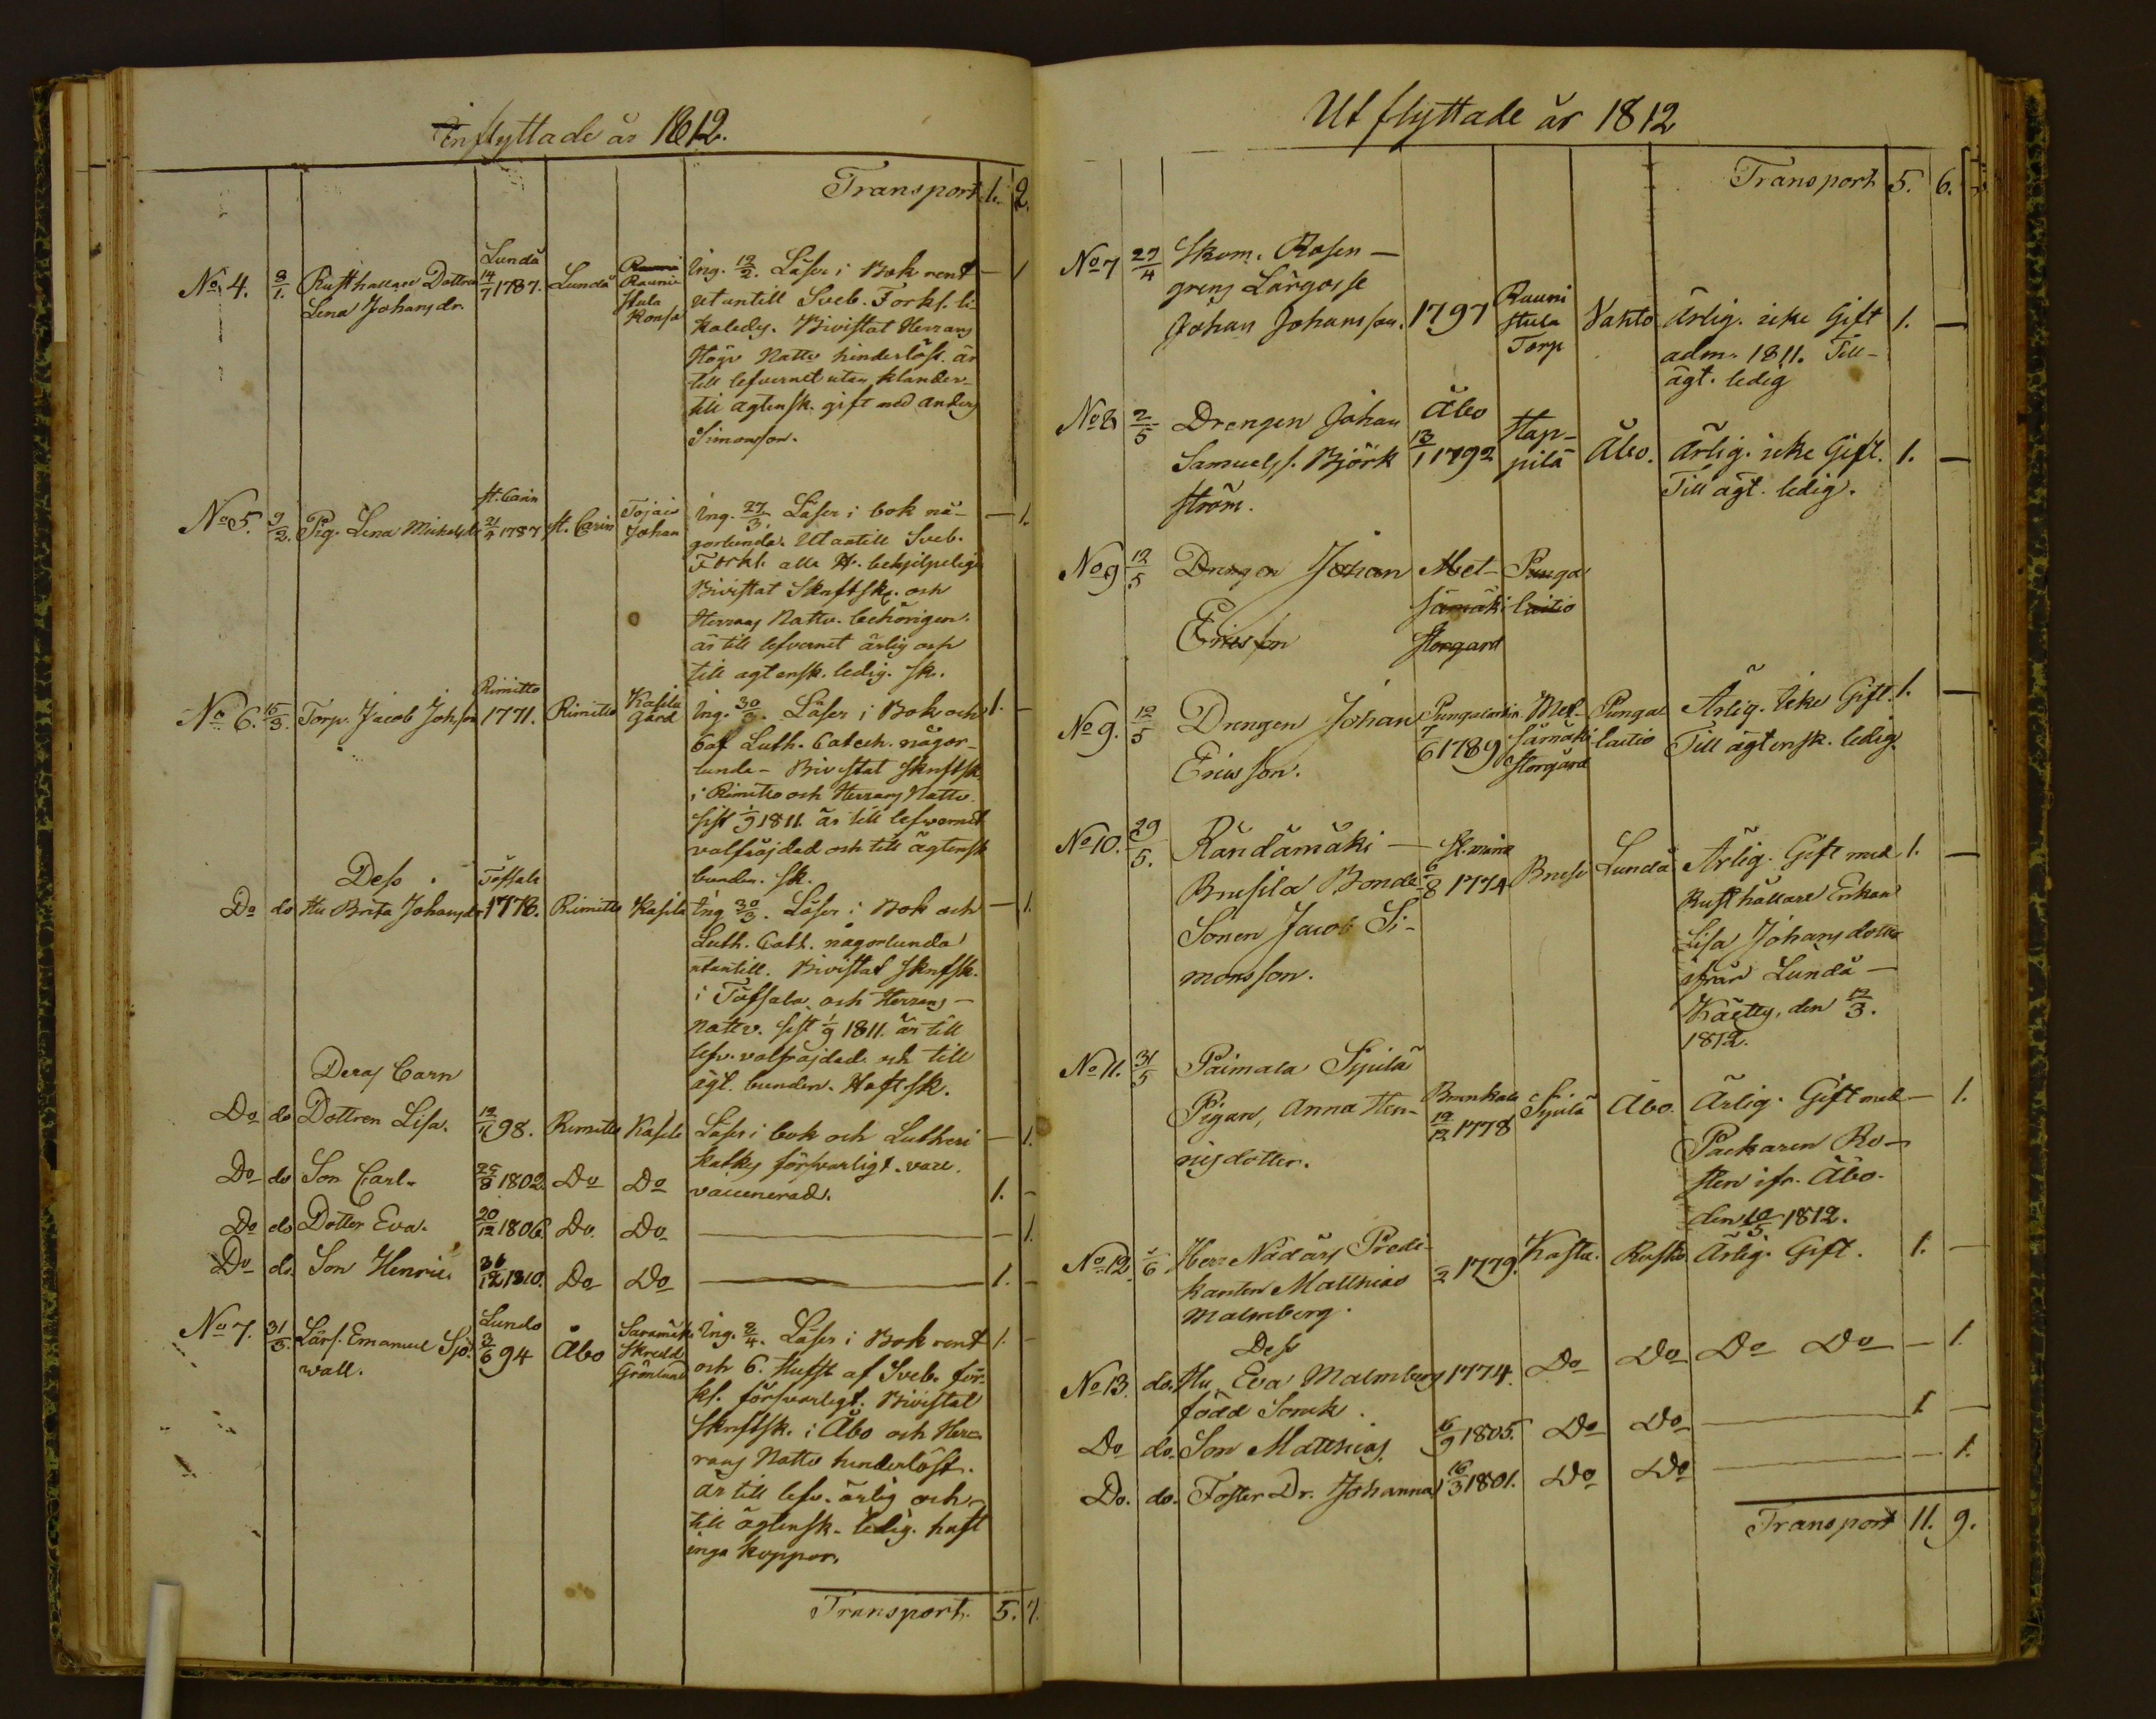 Inflyttade år 1812.
Transport 1. 2.
No 4. 8/1. Rusthållare Dottren Lena Johansdr. Lundå 14/7 1787. Lundå Raunistula Konsa
Ing. 12/2. Läser i Bok rent — 1
utantill Sveb. Forkl. li-
kaledes. Bivistat Herrans
Högv Nattv hinderlöst. är
till lefvernet utan klander-
till ägtensk. gift med Anders
Simonsson.
No 5. 9/2. Pig. Lena Michelsdr St. Carin 21/4 1787 St. Carin Tojais Johan
Ing. 27/3. Läser i bok nå- — 1.
gorlunda. Utantill Sveb.
Forkl. alla H. behjelpelig
Bivistat Skriftsk. och
Herrans Nattv. behörigen.
är till lefvernet ärlig och
till agtensk. ledig. sk.
No 6. 15/3. Torp. Jacob Johsson Rimitto 1771. Rimitto Kasila gård
Ing. 30/3. Läser i Bok och 1. -
Luth. Catech. någor-
lunda - Bivistat Skriftsk
i Rimitto och Herrans Nattv.
sist 1/9 1811. är till lefvernet
välfräjdad och till ägtensk
bunden. sk.
Dess
Do do Hu Brita Johansdr Töfsala 1776. Rimitto Kasila
Ing 30/3. Läser i Bok och — 1.
Luth. Catk. någorlunda
utantill. Bivistat Skriftsk.
i Töfsala och Herrans -
nattv. sist 1/9 1811. är till
lefv. välfräjdad och till
ägt. bunden. Haft sk.
Deras Barn
Do do Dottren Lisa. 12/11 98. Rimitto Kasila Läser i bok och Lutheri — 1.
katkes försvarligt. vac.
Do do Son Carl. 25/8 1802. Do Do vaccinerad. 1. -
Do do Dotter Eva. 20/12 1806. Do. Do — — 1.
Do do. Son Henric. 30/12 1810. Do Do — 1. -
No 7. 31/3. Lärl. Emanuel Sjö-
wall. Lundo 3/6 94 Åbo Skredd Grönlund
Ing. 2/4. Läser i Bok rent 1. -
och 6. Hufst af Sveb. för-
kl. försvarligt. Bivistat
Skriftsk. i Åbo och Her-
rans Nattv hinderlöst.
är till lefv. ärlig och
till ägtensk. ledig. haft
inga koppor.
Transport. 5. 7.
Utflyttade år 1812
Transport 5. 6.
No 7 27/4 Skom. Rosen-
grens Lärgosse
Johan Johansson. 1797 Raunistula Torp Vahto Ärlig. icke Gift 1. —
adm. 1811. Till
ägt. ledig
No 8 2/5 Drengen Johan
Samuelss. Björk-
ström. Åbo 13/1 1792 Happilä Åbo. Ärlig. icke Gift. 1. —
Till ägt. ledig.
No 9 12/5 Drengen Johan Ericsson Metsämäki Storgård Pungalaitio
No 9. 12/5 Drengen Johan
Ericsson. Pungalaitio 7/6 1789 Metsämäki Storgård Pungalaitio Ärlig. Icke Gift. 1. —
Till ägtensk. ledig.
No 10. 29/5. Rändämäki
Brusila Bonde
Sonen Jacob Si-
monsson. St. Maria 6/8 1774 Brusi Lundå Ärlig. Gift med 1. —
Rusthållare Enkan
Lisa Johansdotter
ifrån Lundå
den 12/3.
1812.
No 11. 31/5 Paimala Sipilä
Pigan, Anna Hen-
ricsdotter. Brunkala 12/12 1778 Sipilä Åbo. Ärlig. Gift med — 1.
Packaren Ro-
sten ifr. Åbo.
den 10/5 1812.
No 12. /6 Herr Nådårs Predi-
kanten Matthias
Malmberg. /2 1779. Kastu. Rusko. Ärlig. Gift. 1. —
Dess
No 13. do. Hu Eva Malmberg 1774. Do Do Do Do — 1
född Sonck.
Do do. Son Matthias 16/9 1805. Do Do — 1 —
Do. do. Foster Dr. Johanna 16/3 1801. Do Do — — 1.
Transport 11. 9.